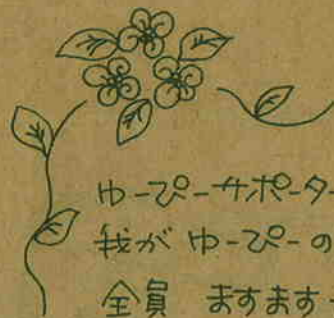 ゆーぴーサポータ
我が ゆーぴーの
全員 ますます